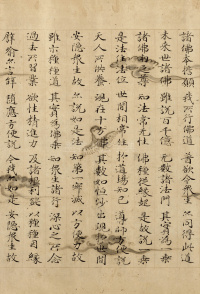 諸佛本誓願 我所行佛道 普欲令衆生 亦同得此道
未來世諸佛 雖說百千億 無數諸法門 其實爲一乘
諸佛兩足尊 知法常無性 佛種從緣起 是故說一乘
是法住法位 世間相常住 於道場知已 導師方便說
天人所供養 現在十方佛 其數如恒沙 出現於世間
安隱衆生故 亦說如是法 知第一寂滅 以方便力故
雖示種種道 其實爲佛乘 知衆生諸行 深心之所念
過去所習業 欲性精進力 及諸根利鈍 以種種因緣
譬喻亦言辭 隨應方便說 今我亦如是 安隱衆生故